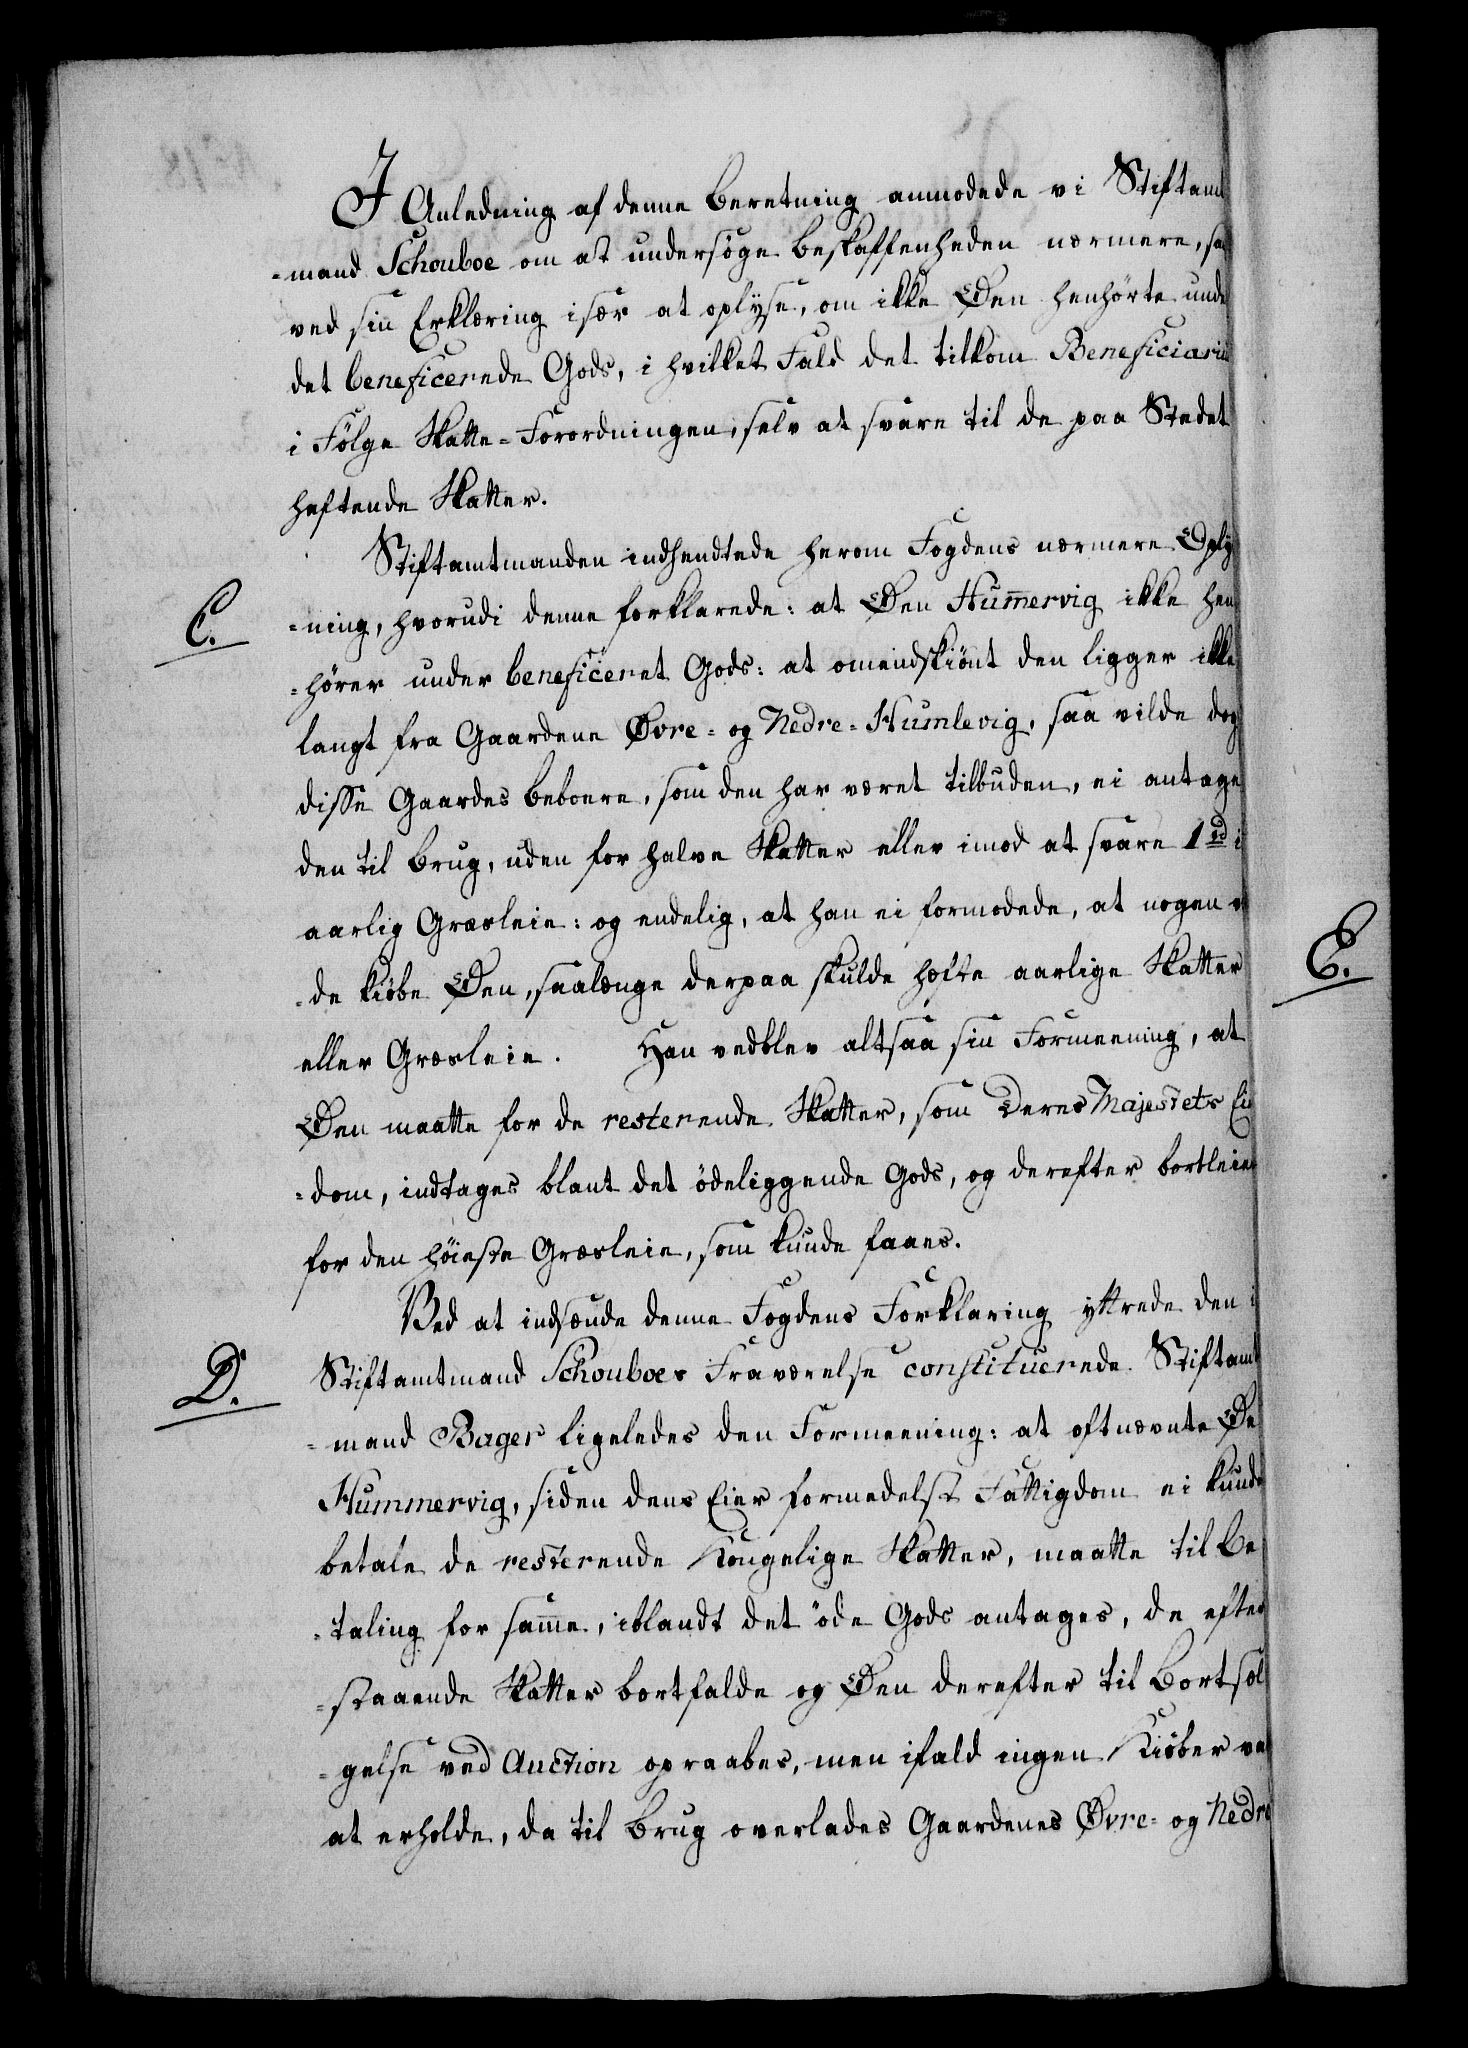 I Anledning af denne Beretning anmodede vi Stiftamt
=mand Schouboe om at undersøge Beskaffenheden nærmere, sa
ved sin Erklæring især at oplyse, om ikke Øen henhørte unde
det beneficerede Gods, i hvilket Fald det tilkom Beneficiariu
i Følge Skatte=Forordningen, selv at svare til de paa Stedet
heftende Skatter.
Stiftamtmanden indhendtede herom Fogdens nærmere Oply
C.
=ning, hvorudi denne forklarede: at Øen Hum̅ervig ikke hen
=hører under beneficeret Gods: at omendskiønt den ligger ikke
langt fra Gaardene Øvre= og Nedre=Humlevig, saa vilde dog
disse Gaardes Beboere, som den har været tilbuden, ei antage
den til Brug, uden for halve Skatter eller imod at svare 1 rd i
aarlig Græsleie: og endelig, at han ei formodede, at nogen v
=de kiøbe Øen, saalænge derpaa skulde hæfte aarlige Skatter
E.
eller Græsleie. Han vedblev altsaa sin Formeening, at
Øen maatte for de resterende Skatter, som Deres Majestets Ei
=dom, indtages blant det ödeliggende Gods, og derefter bortleies
for den höieste Græsleie, som kunde faaes.
Ved at indsænde denne Fogdens Forklaring yttrede den i
D.
Stiftamtmand Schouboes Fraværelse constituerede Stiftamt
=mand Bager ligeledes den Formeening: at oftnævnte Øe
Hummervig, siden dens Eier formedelst Fattigdom ei kunde
betale de resterende Kongelige Skatter, maatte til Be
=taling for sam̅e, iblandt det öde Gods antages, de efter
=staaende Skatter bortfalde og Øen derefter til Bortsæl
=gelse ved Auction opraabes, men ifald ingen Kiøber va
at erholde, da til Brug overlades Gaardenes Øvre= og Nedre